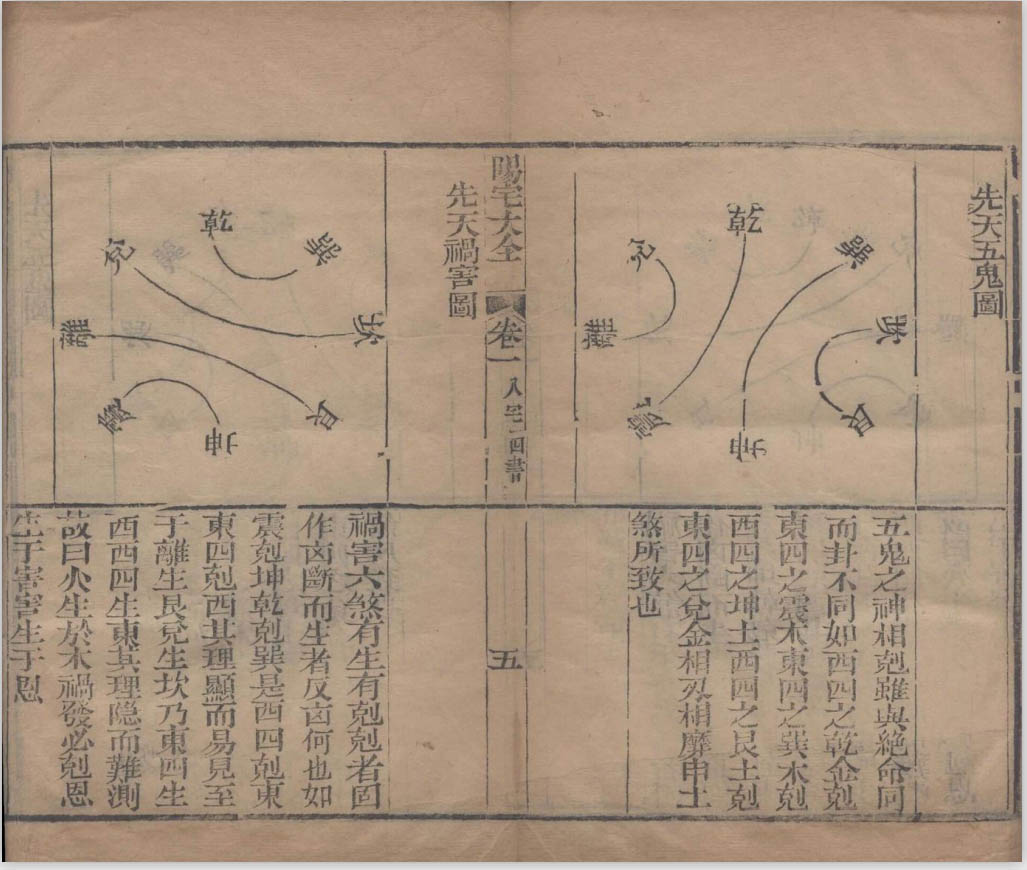 先天五鬼圖
乾
巽
坎
艮
坤
震
離
兌
五鬼之神相剋雖與絕命同
而卦不同如西四之乾金剋
東四之震木東四之巽木剋
西四之坤土西四之艮土剋
東四之兌金相刄相靡申土
煞所致也
陽宅大全
卷一
八宅四書
五
先天禍害圖
乾
巽
坎
艮
坤
震
離
兌
禍害六煞有生有剋剋者固
作卤斷而生者反卤何也如
震剋坤乾剋巽是西四剋東
東四剋西其理顯而易見至
于離生艮兌生坎乃東四生
西西四生東其理隐而難測
故曰火生於木禍發必剋恩
生于害害生于恩